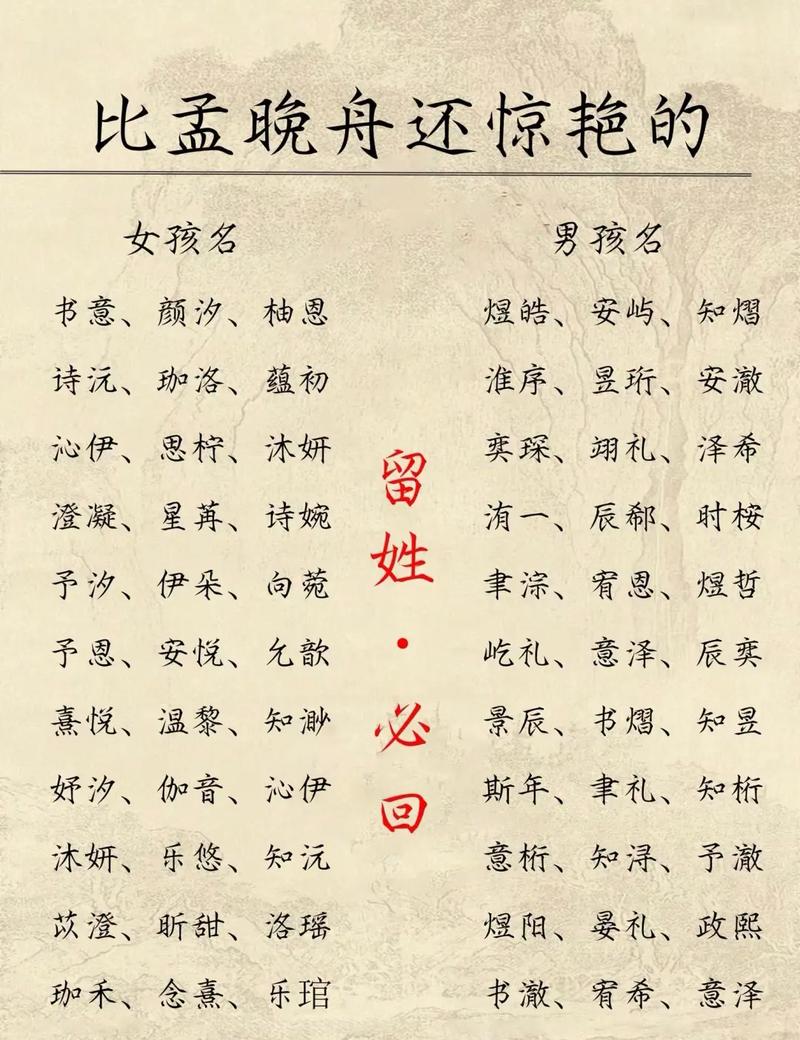 比孟晚舟还惊艳的
女孩名
书意、颜汐、柚恩
诗沅、珈洛、蕴初
沁伊、思柠、沐妍
澄凝、星苒、诗婉
予汐、伊朵、向菀
予恩、安悦、允歆
熹悦、温黎、知渺
妤汐、伽音、沁伊
沐妍、乐悠、知沅
苡澄、昕甜、洛瑶
珈禾、念熹、乐琯
留姓·必回
男孩名
煜皓、安屿、知熠
淮序、昱珩、安澈
奕琛、翊礼、泽希
洧一、辰郗、时桉
聿淙、宥恩、煜哲
屹礼、意泽、辰奕
景辰、书熠、知昱
斯年、聿礼、知桁
意桁、知浔、予澈
煜阳、晏礼、政熙
书澈、宥希、意泽